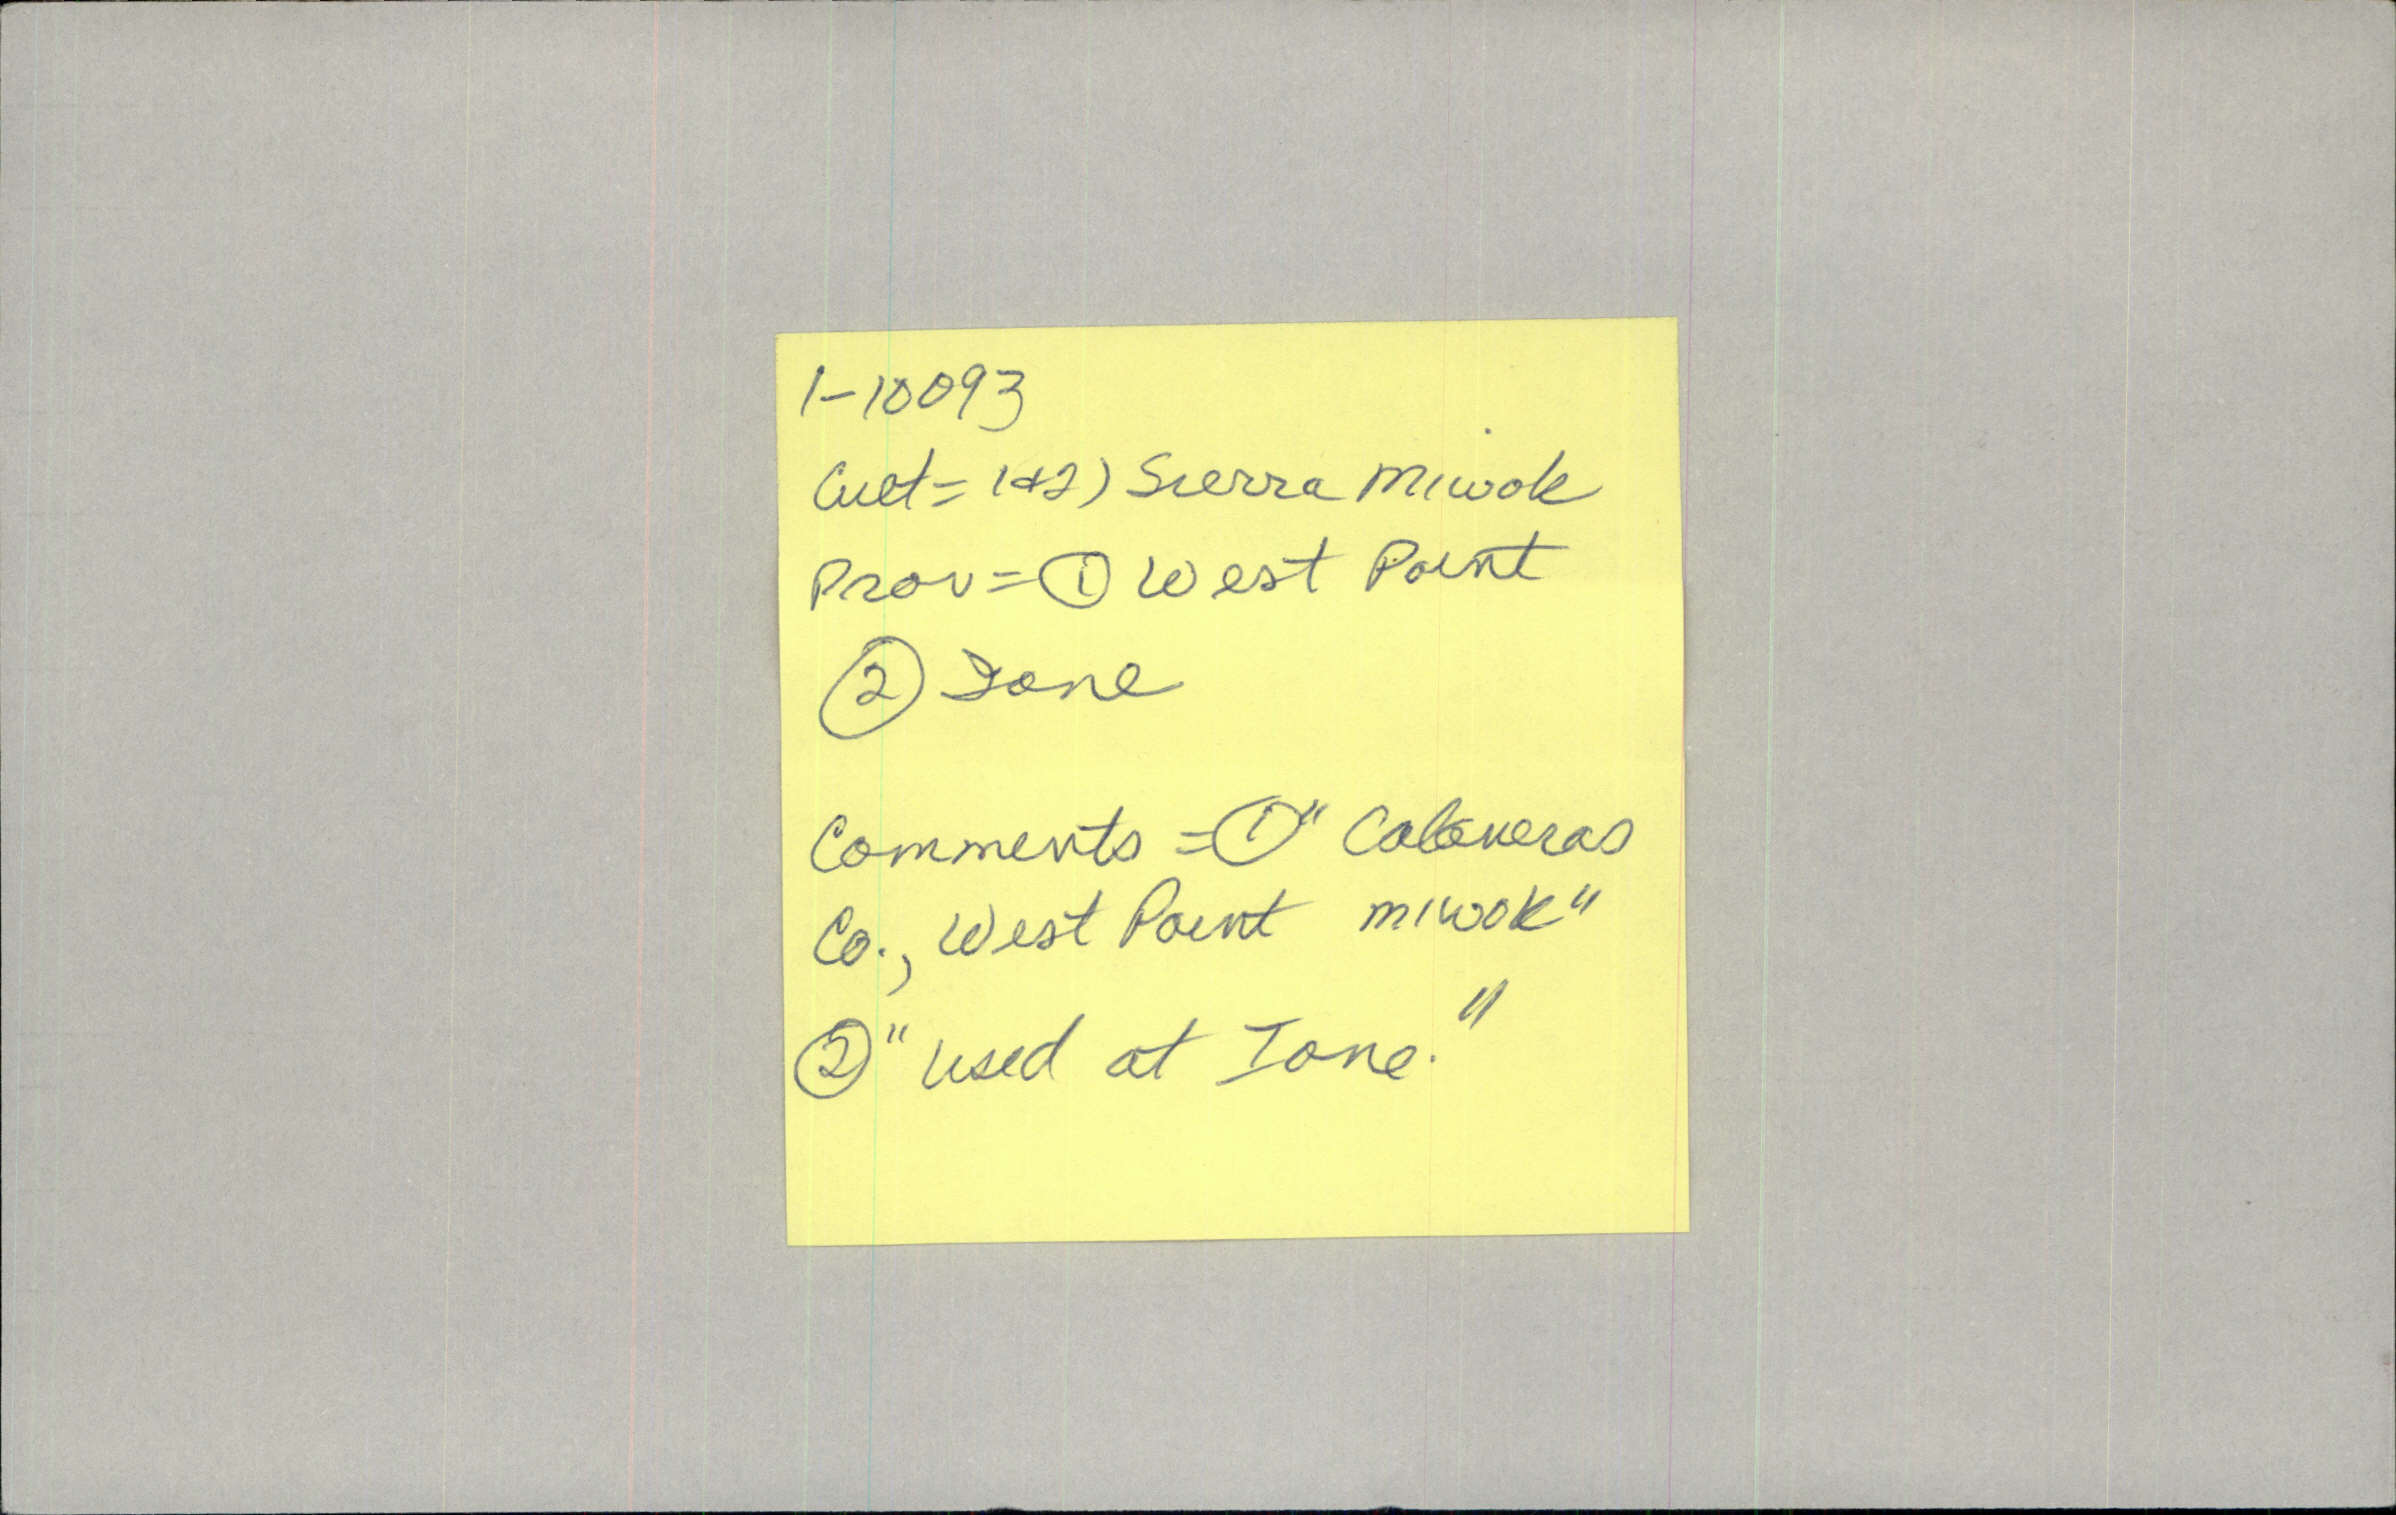 1-10093
Cult = 1+2) Sierra Miwok
Prov = ① West Point
② Ione
Comments = ① "Calaveras
Co., West Point miwok"
② "used at Ione."